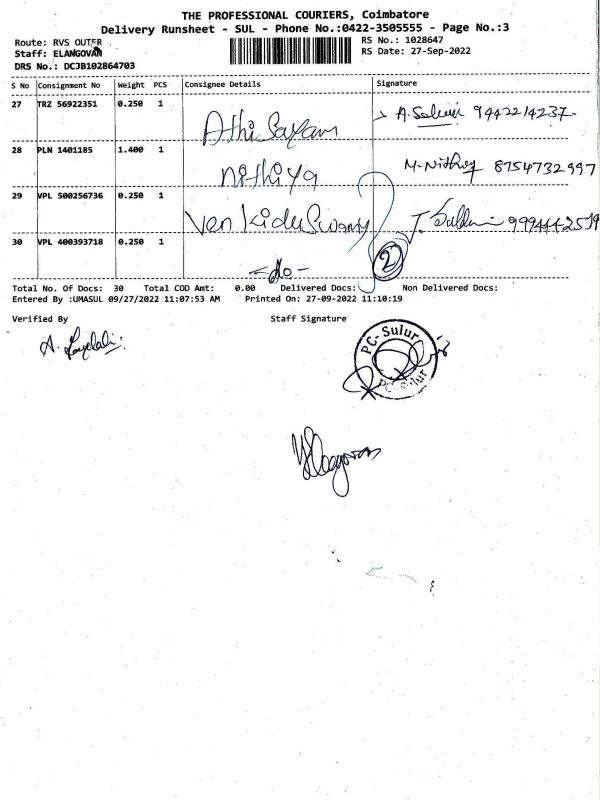 THE PROFESSIONAL COURIERS, Coimbatore
Delivery Runsheet - SUL - Phone No.:0422-3505555 - Page No.:3
Route: RVS OUTER
RS No.: 1028647
Staff: ELANGOVAN
RS Date: 27-Sep-2022
DRS No.: DCJB102864703
S No Consignment No Weight PCS Consignee Details Signature
27 TRZ 56922351 0.250 1
Athi Sayam A. 9442214237
28 PLN 1401185 1.400 1
Nithiya M. 8754732997
29 VPL 500256736 0.250 1
Venkiduswamy J. 9994442519
30 VPL 400393718 0.250 1
-do-
2
Total No. Of Docs: 30 Total COD Amt: 0.00 Delivered Docs: Non Delivered Docs:
Entered By :UMASUL 09/27/2022 11:07:53 AM Printed On: 27-09-2022 11:10:19
Verified By Staff Signature
PC-Sulur
PC-Sulur